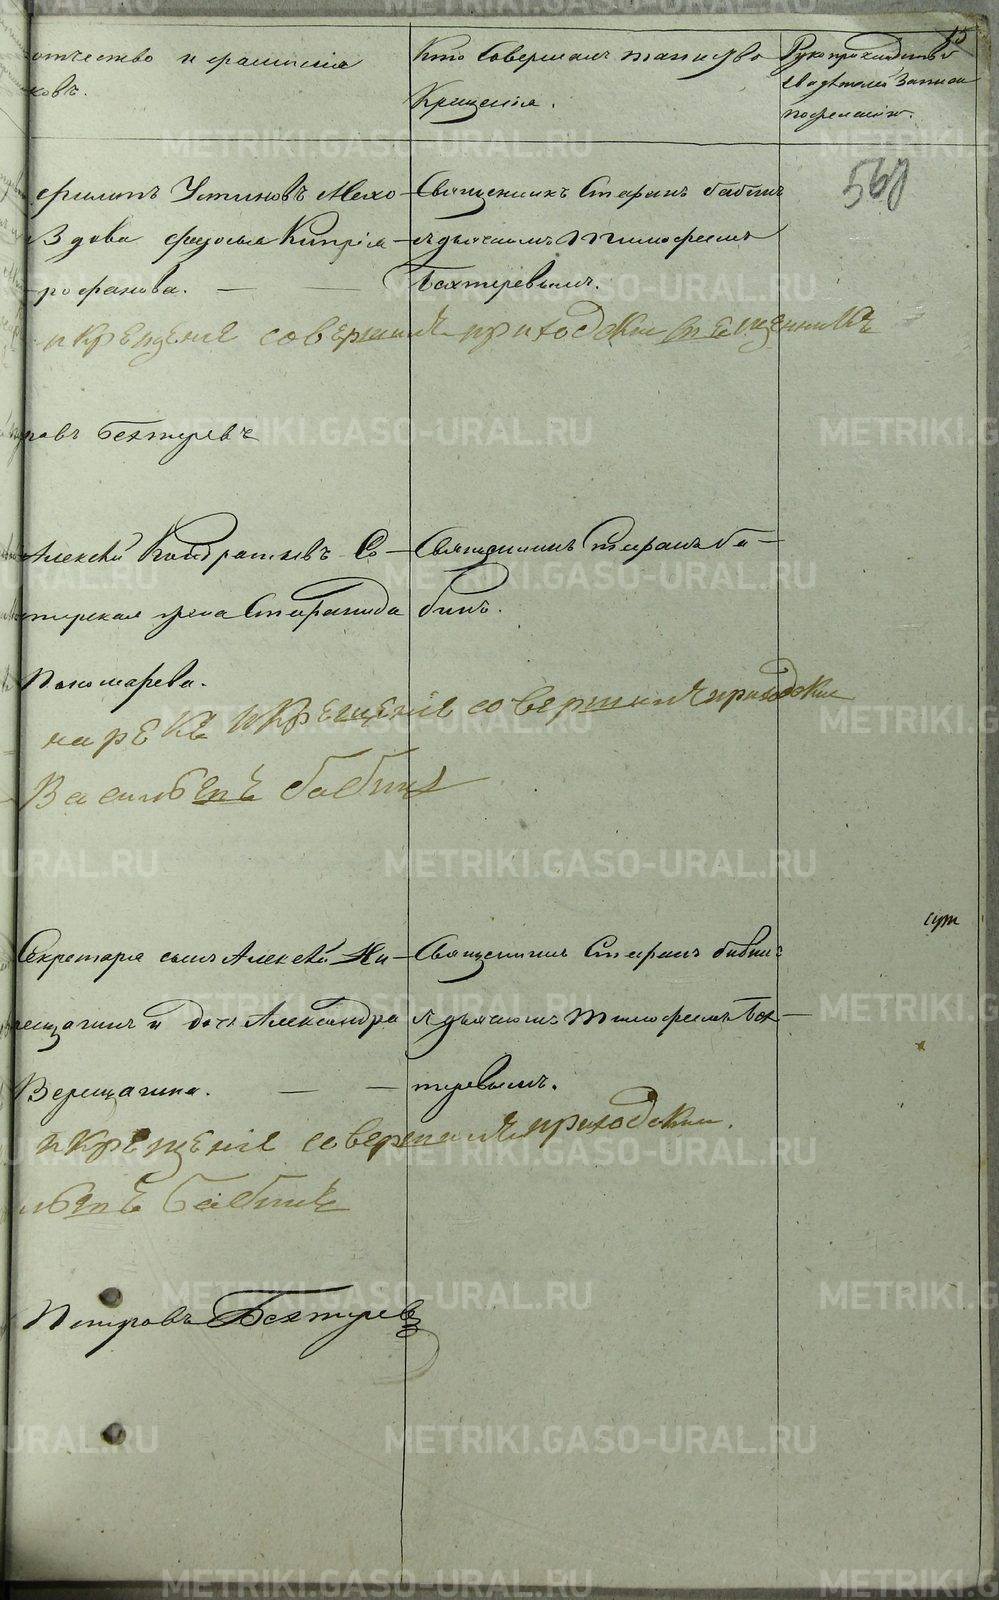 15
отчество и фамилия
ковъ.
Кто совершалъ таинство
Крещенія.
Рукоприкладство
свидѣтелей записи
по желанію.
560
Филипъ Устиновъ Мехо-
Вдова Федосья Кипріа-
рофанова.
Священникъ Стефанъ Бабинъ
съ дьячкомъ Тимофеемъ
Бехтеревымъ.
и крещеніе совершилъ приходскій священникъ
Бехтеревъ
Алексѣй Кондратьевъ Со-
жена Стефанида
Пономарева.
Священникъ Стефанъ Ба-
бинъ.
нарекъ и крещеніе совершилъ приходскій
Васильевъ Бабинъ
Секретаря сынъ Алексѣй Ки-
рещагинъ и дочь Александра
Верещагина.
Священникъ Стефанъ Бабинъ
съ дьячкомъ Тимофеемъ Бех-
теревымъ.
и крещеніе совершилъ приходскій
льевъ Бабинъ
Петровъ Бехтерев
METRIKI.GASO-URAL.RU